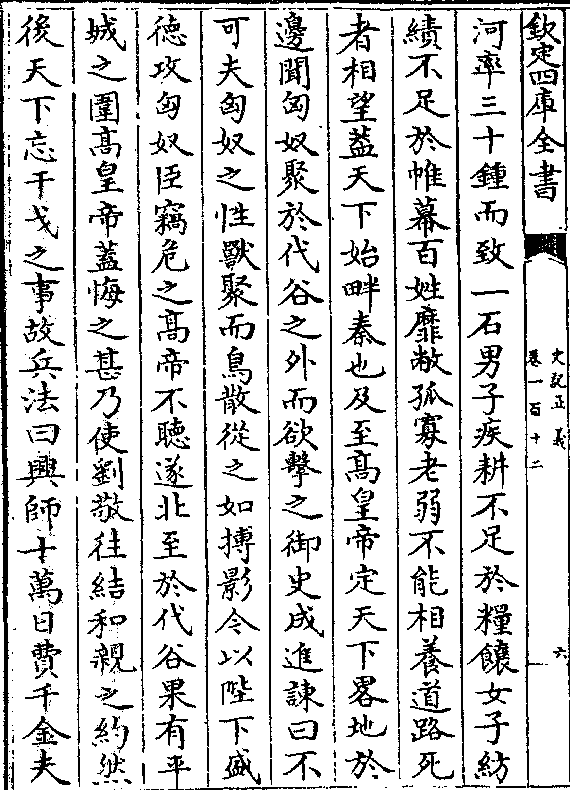 欽定四庫全書
史記正義
卷一百十二
六
河率三十鍾而致一石男子疾耕不足於糧饟女子紡
績不足於帷幕百姓靡敝孤寡老弱不能相養道路死
者相望葢天下始畔秦也及至髙皇帝定天下畧地於
邊聞匈奴聚於代谷之外而欲擊之御史成進諫曰不
可夫匈奴之性獸聚而鳥散從之如搏影今以陛下盛
徳攻匈奴臣竊危之髙帝不聽遂北至於代谷果有平
城之圍髙皇帝蓋悔之甚乃使劉敬往結和親之約然
後天下忘干戈之事故兵法曰興師十萬日費千金夫